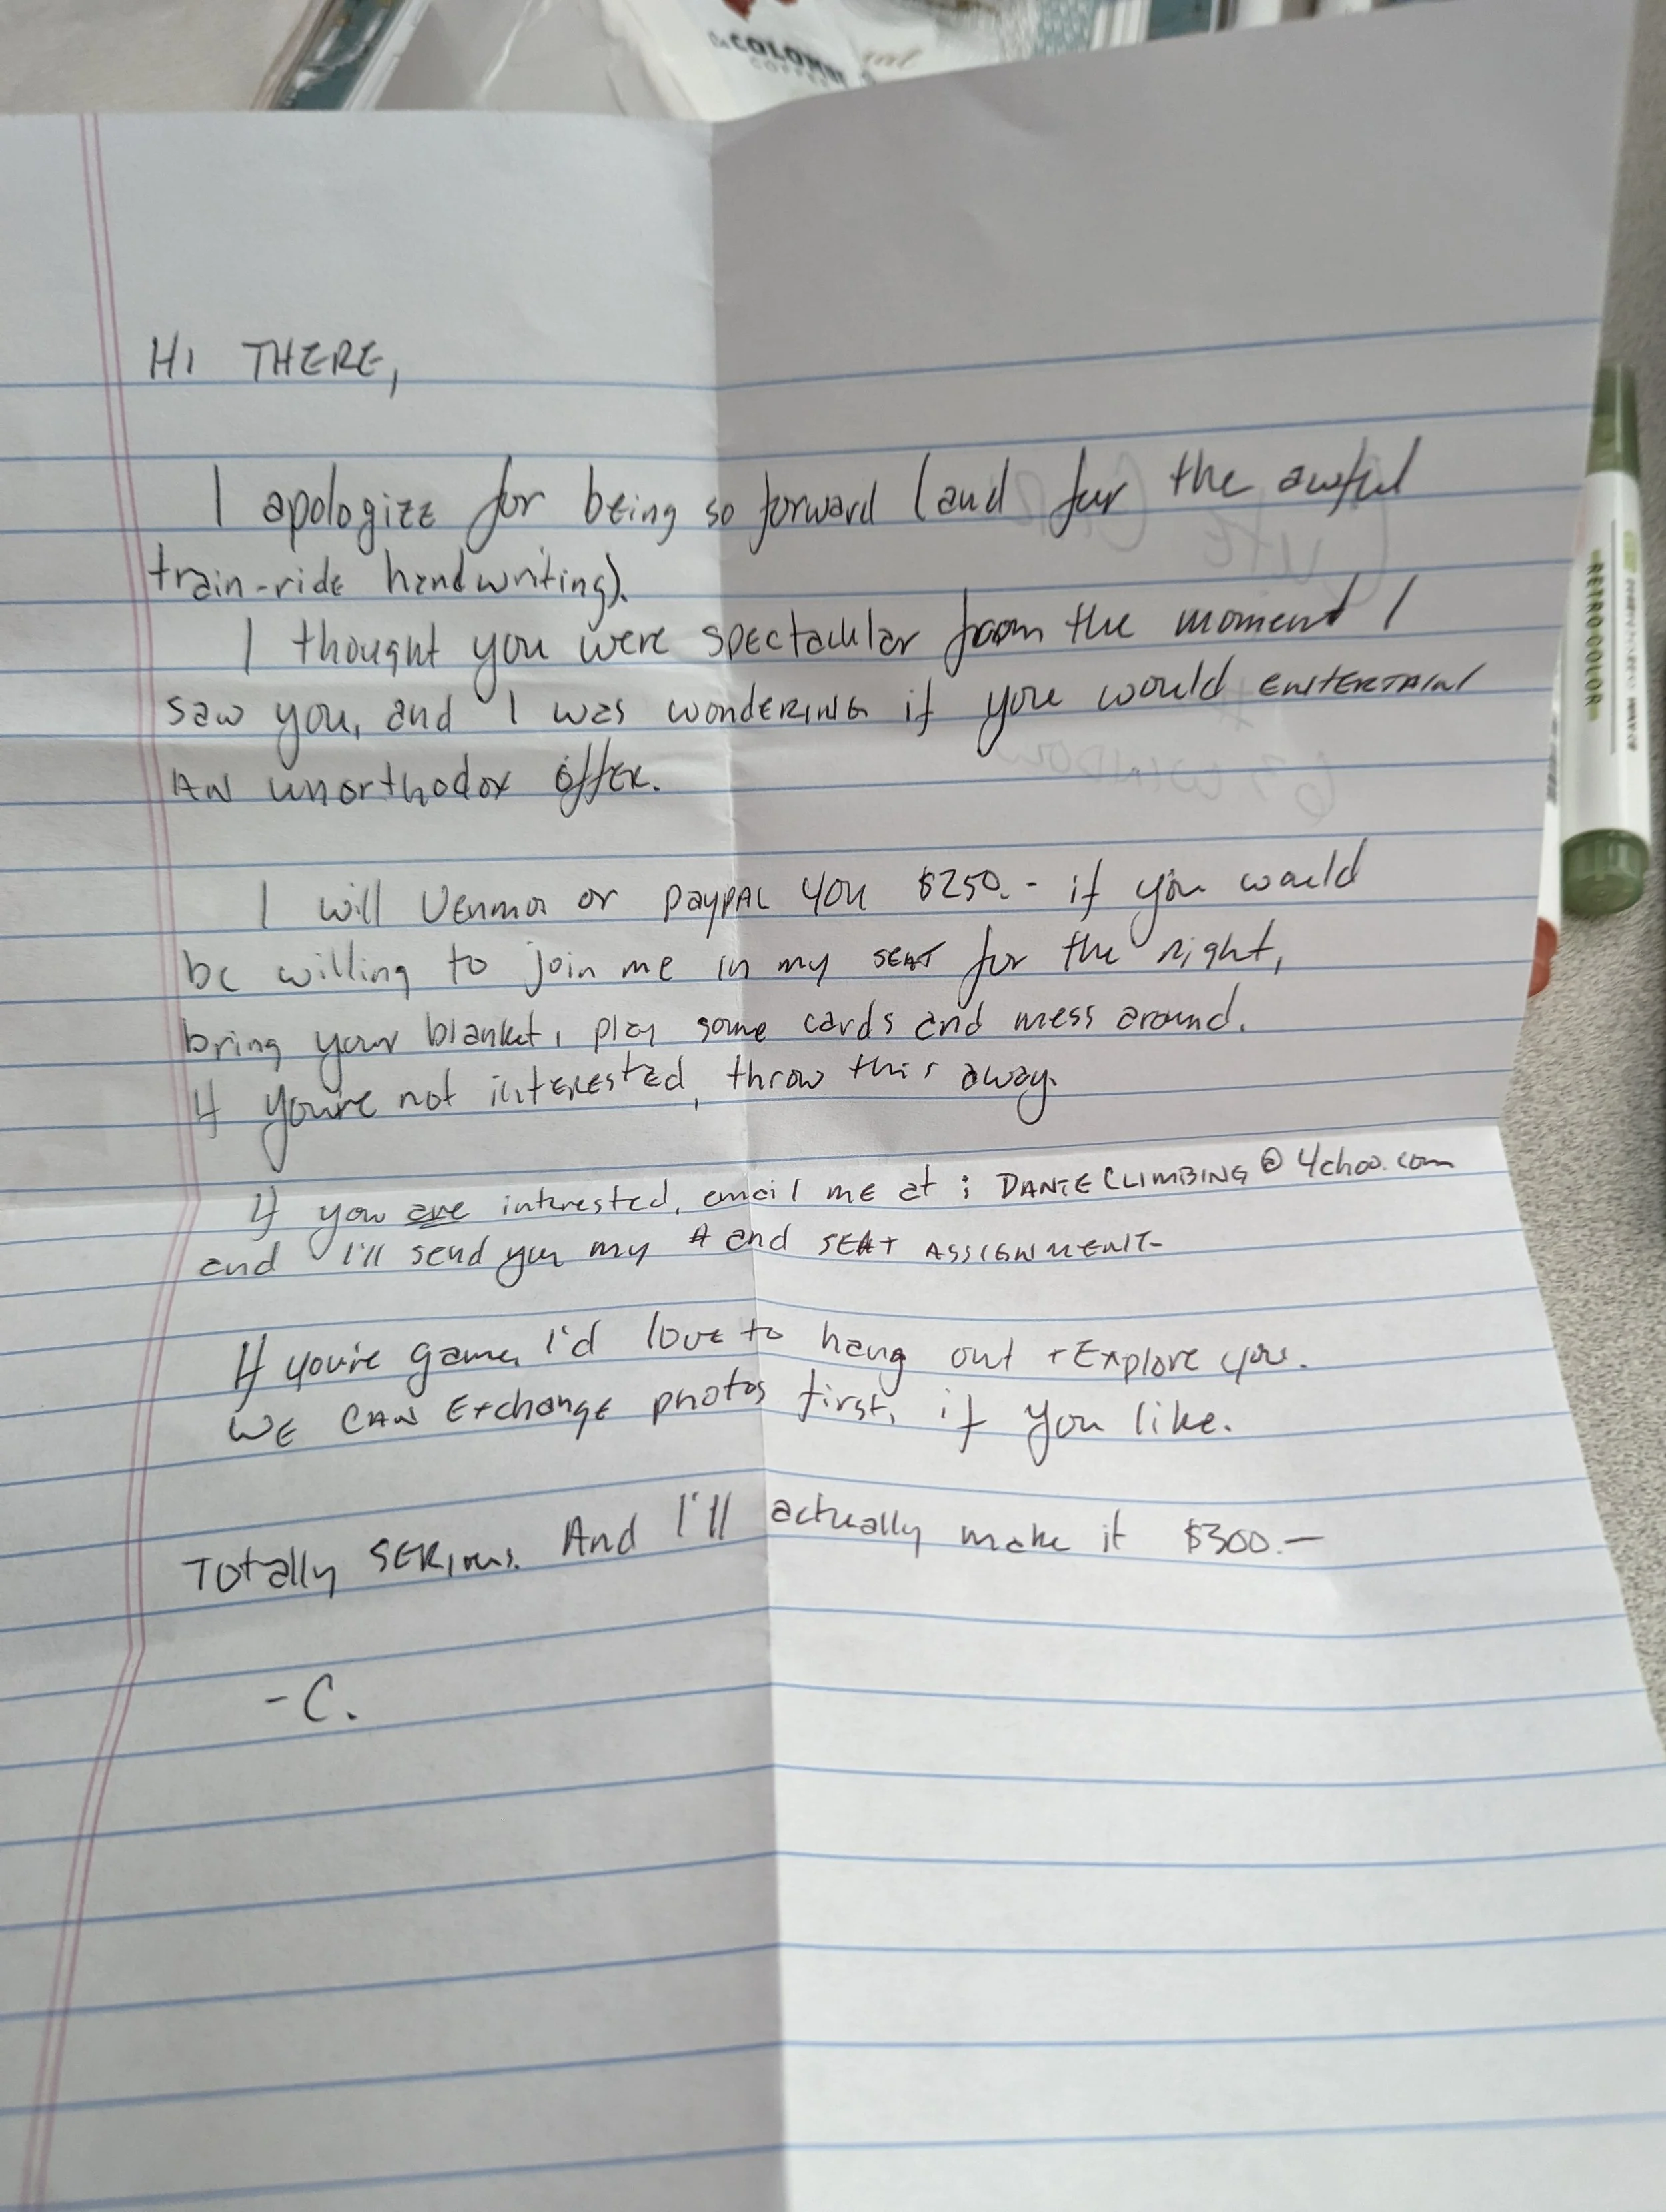 COLOMB
COFFEE
HI THERE,
I apologize for being so forward (and for the awful
train-ride handwriting).
I thought you were spectacular from the moment I
saw you, and I was wondering if you would entertain
an unorthodox offer.
I will Venmo or paypal you $250.- if you would
be willing to join me in my seat for the night,
bring your blanket, play some cards and mess around.
If you're not interested, throw this away.
If you are interested, email me at: DANTECLIMBING@
and I'll send you my # and seat assignment-
If you're game, I'd love to hang out + explore you.
We can exchange photos first, if you like.
Totally serious. And I'll actually make it $300.-
-C.
RETRO COLOR